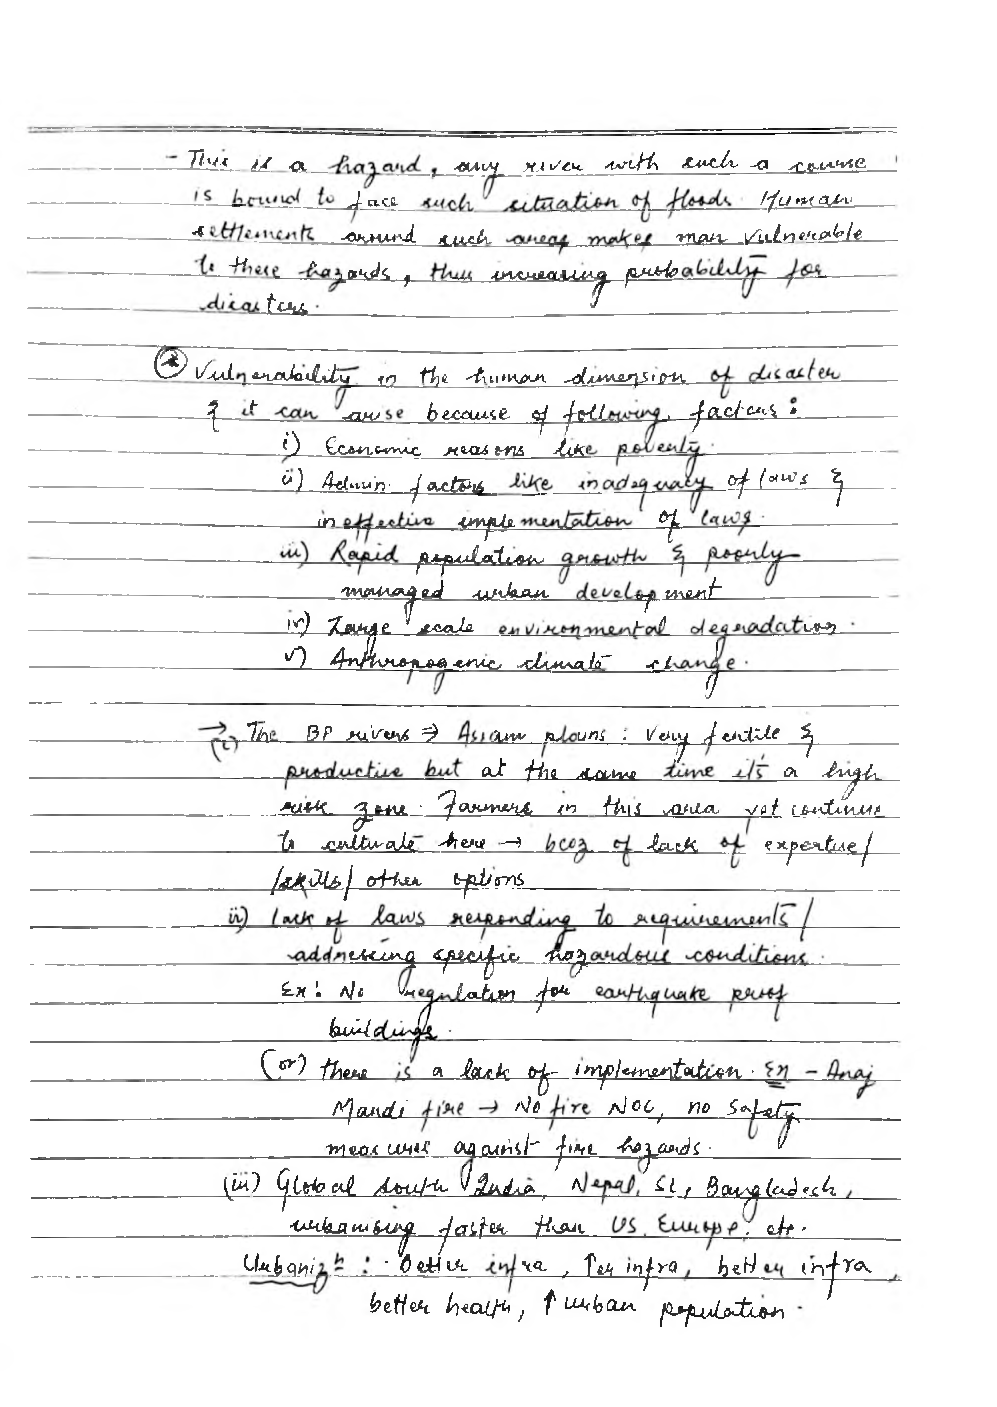 - This is a hazard, any river with such a course
is bound to face such situation of floods. Human
settlements around such areas makes man vulnerable
to these hazards, thus increasing probability for
disasters.
Vulnerability in the human dimension of disaster
& it can arise because of following factors:
i) Economic reasons like poverty.
ii) Admin. factors like inadequacy of laws &
ineffective implementation of laws.
iii) Rapid population growth & poorly
managed urban development
iv) Large scale environmental degradation.
v) Anthropogenic climate change.
→ (i) The BP rivers ⇒ Assam plains: Very fertile &
productive but at the same time it's a high
risk zone. Farmers in this area yet continue
to cultivate here → bcoz of lack of expertise/
/skills/ other options
ii) Lack of laws responding to requirements/
addressing specific hazardous conditions.
Ex: No regulation for earthquake proof
buildings.
(or) there is a lack of implementation. Ex - Anaj
Mandi fire → No fire NOC, no safety
measures against fire hazards.
(iii) Global south India, Nepal, SL, Bangladesh,
urbanising faster than US, Europe, etc.
Urbanizn: Better infra, ↑er infra, better infra,
better health, ↑ urban population.